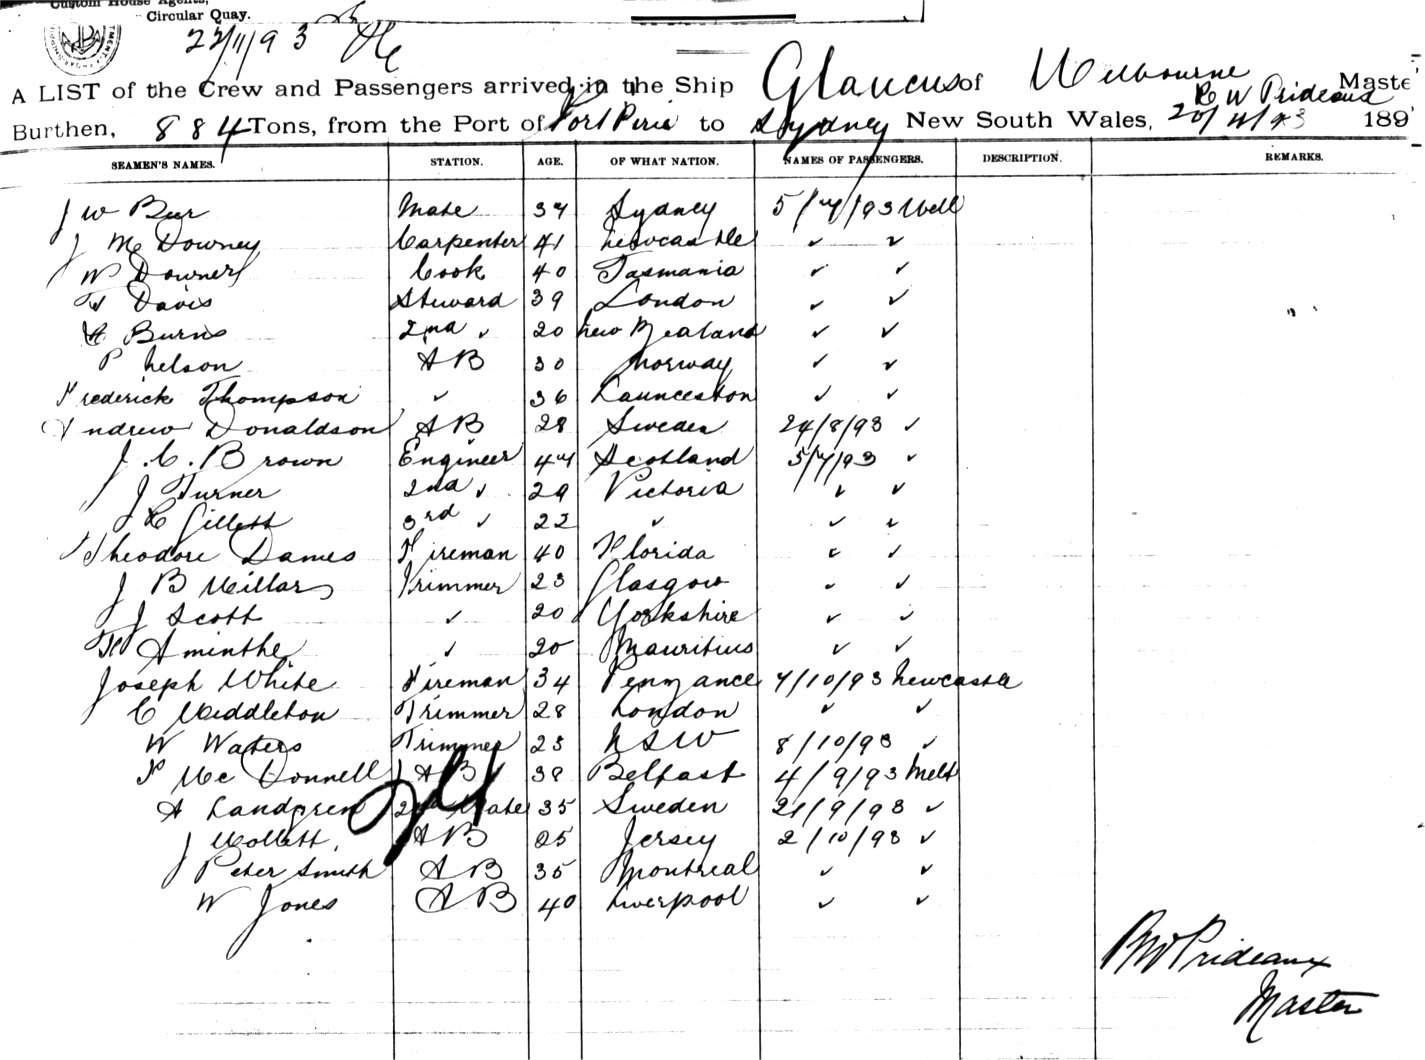 Custom House Agents,
Circular Quay.
22/11/93
A LIST of the Crew and Passengers arrived in the Ship Glaucus of Melbourne R W Prideaux Maste
Burthen, 884 Tons, from the Port of Port Pirie to Sydney New South Wales, 20/11/93 189
SEAMEN'S NAMES. STATION. AGE. OF WHAT NATION. NAMES OF PASSENGERS. DESCRIPTION. REMARKS.
J W Mate 37 Sydney 5/7/93
J Mc Downey Carpenter 41 Newcastle " "
W Downer Cook 40 Tasmania " "
Davis Steward 39 London " "
Burns 2nd " 20 New Zealand " "
P Nelson A B 30 Norway " "
Frederick Thompson " 36 Launceston " "
Andrew Donaldson A B 28 Sweden 24/8/93 "
J. C. Brown Engineer 47 Scotland 5/7/93 "
J Turner 2nd " 29 Victoria " "
J Gillett 3rd " 22 " " "
Theodore Dames Fireman 40 Florida " "
J B Millar Trimmer 23 Glasgow " "
J Scott " 20 Yorkshire " "
Aminthe " 20 Mauritius " "
Joseph White Fireman 34 Penzance 7/10/93 Newcastle
C Middleton Trimmer 28 London " "
W Waters Trimmer 23 NSW 8/10/93 "
Mc Donnell A B 38 Belfast 4/9/93 Melb
A Landgren 2nd Mate 35 Sweden 21/9/93 "
J Mollett A B 25 Jersey 2/10/93 "
Peter Smith A B 35 Montreal " "
W Jones A B 40 Liverpool " "
RW Prideaux
Master